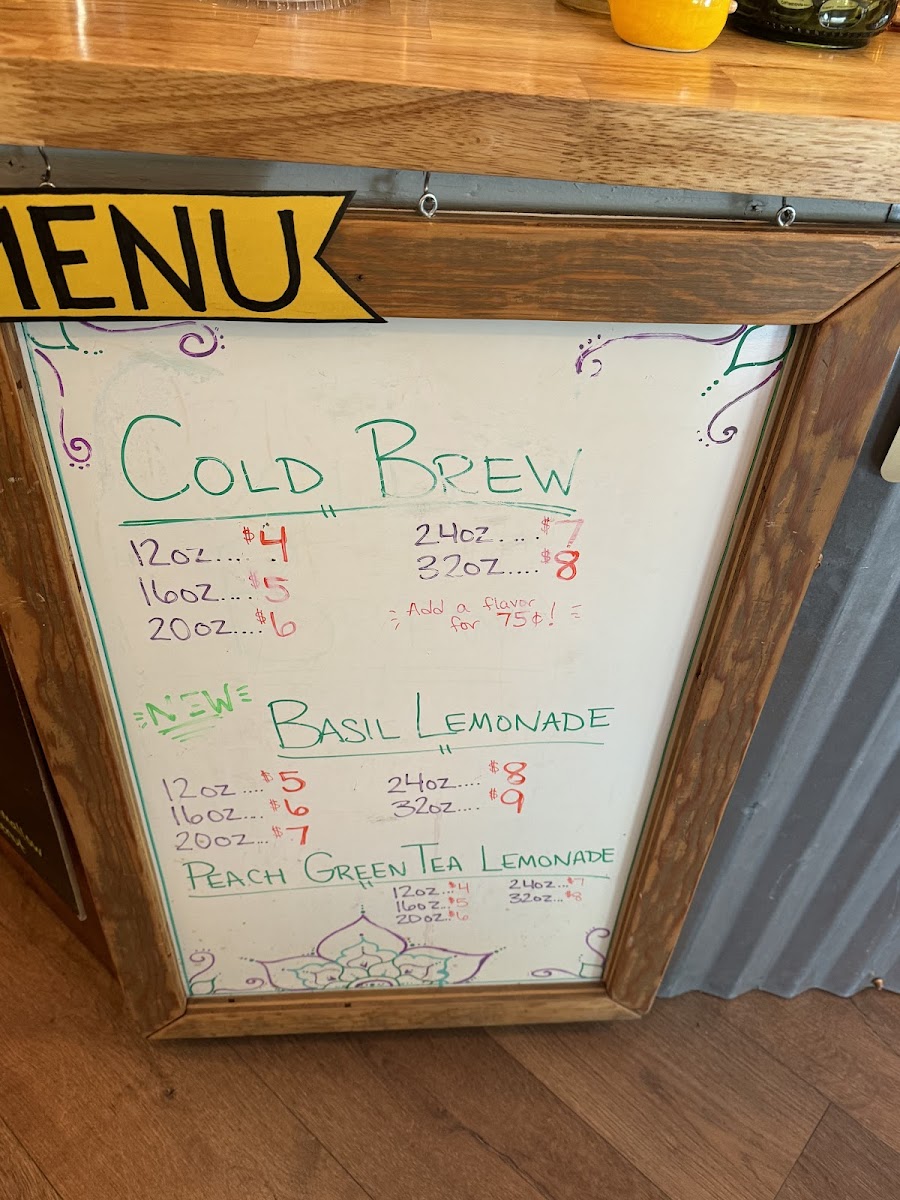 MENU
COLD BREW
12oz.... $4
16oz.... $5
20oz.... $6
24oz.... $7
32oz.... $8
Add a flavor
for 75¢!
NEW
BASIL LEMONADE
12oz .... $5
16oz... $6
20oz... $7
24oz.... $8
32oz.... $9
PEACH GREEN TEA LEMONADE
12oz... $4
16oz.. $5
20oz.. $6
24oz... $7
32oz... $8